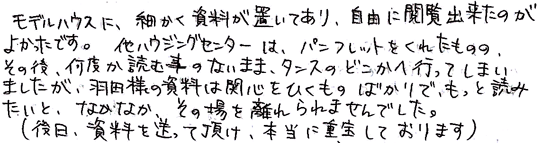 モデルハウスに、細かく資料が置いてあり、自由に閲覧出来たのが
よかたです。他ハウジングセンターは、パンフレットをくれたものの、
その後、何度か読む事のないまま、タンスのどこかへ行ってしまい
ましたが、羽田様の資料は関心をひくものばかりで、もっと読み
たいと、なかなか、その場を離れられませんでした。
(後日、資料を送って頂け、本当に重宝しております)